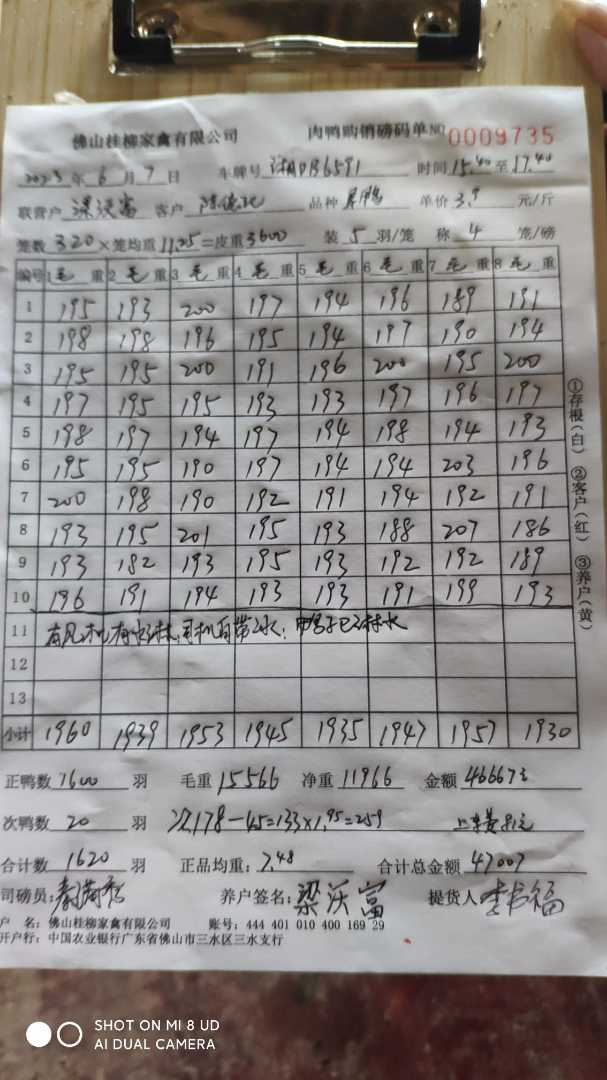 佛山桂柳家禽有限公司 肉鸭购销磅码单 NO 0009735
2023年 6 月 7 日 车牌号 时间 15.40 至 17.40
联营户 梁沃富 客户 品种 单价 3.9 元/斤
笼数 320 ×笼均重 11.25 =皮重 3600 装 5 羽/笼 称 4 笼/磅
编号 1 毛 重 2 毛 重 3 毛 重 4 毛 重 5 毛 重 6 毛 重 7 毛 重 8 毛 重
1 195 193 200 197 194 196 189 191
2 198 198 196 195 194 197 190 194
3 195 195 200 191 196 200 195 200
4 197 195 195 193 193 197 196 197
5 198 197 194 197 194 198 194 193
6 195 195 190 197 194 194 203 196
7 200 198 190 192 191 194 192 191
8 193 195 201 195 193 188 207 186
9 193 182 193 195 193 192 192 189
10 196 191 194 193 193 191 199 193
11
12
13
小计 1960 1939 1953 1945 1935 1947 1957 1930
①存根(白) ②客户(红) ③养户(黄)
正鸭数 1600 羽 毛重 15566 净重 11966 金额 46667元
次鸭数 20 羽 178-45=133×1.95=259
合计数 1620 羽 正品均重: 7.48 合计总金额 47007
司磅员: 养户签名: 梁沃富 提货人 李书福
户 名: 佛山桂柳家禽有限公司 账号: 444 401 010 400 169 29
开户行: 中国农业银行广东省佛山市三水区三水支行
SHOT ON MI 8 UD
AI DUAL CAMERA